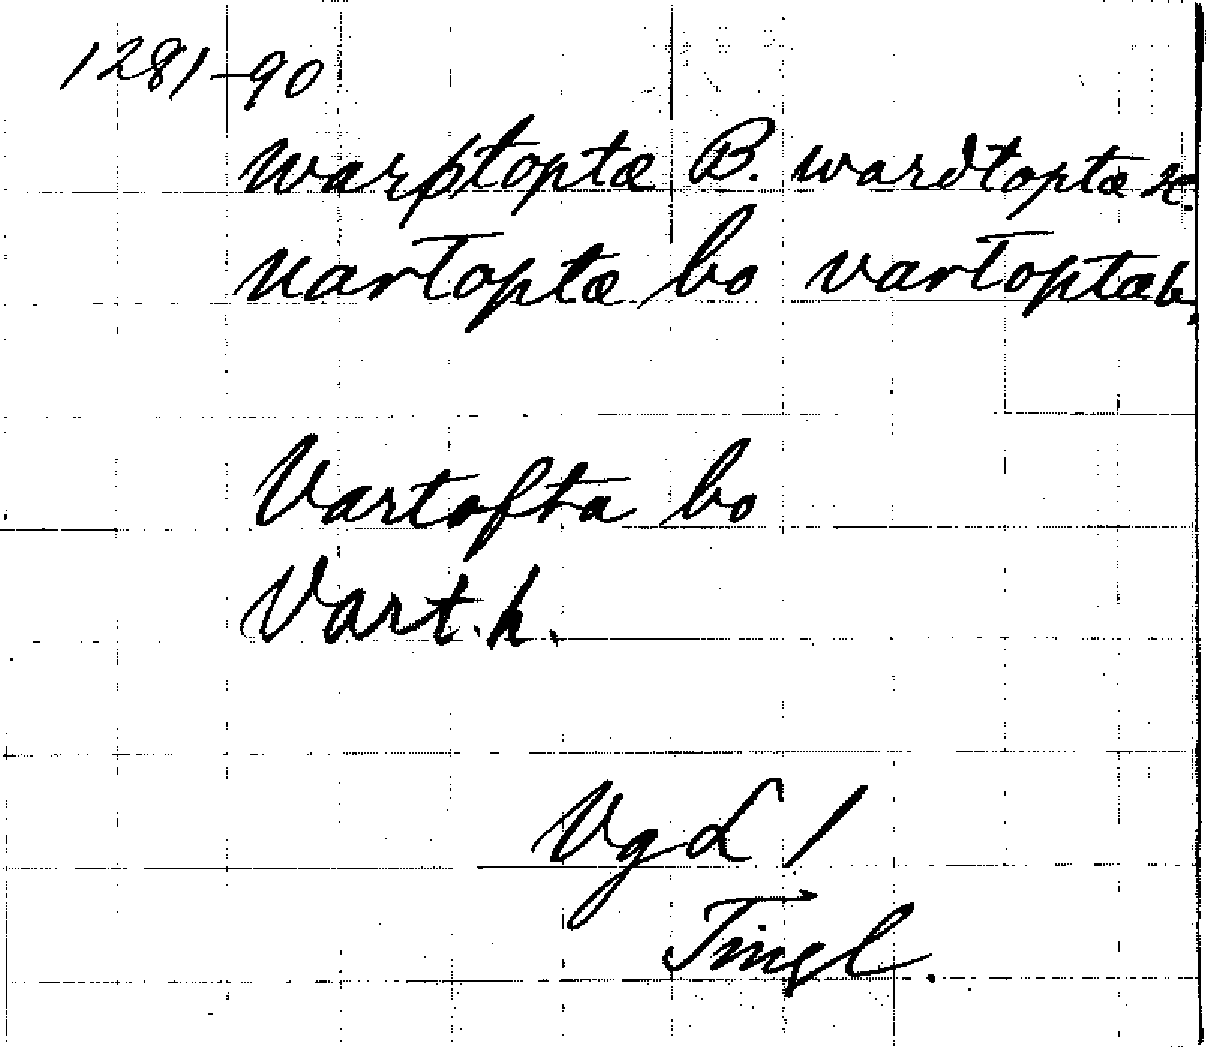 1281-90
warþtoptæ B. wardtoptæ &c.
vartoptæ bo vartoptæb.
Vartofta bo
Vart. h.
VgL 1
Tingl.